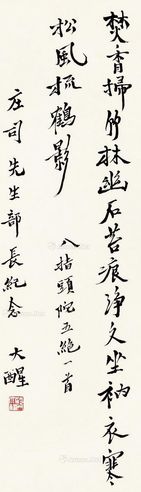 焚香掃竹林幽石苔痕淨久坐衲衣寒
松風梳鶴影
八指頭陀五絕一首
庄司先生部長紀念
大醒